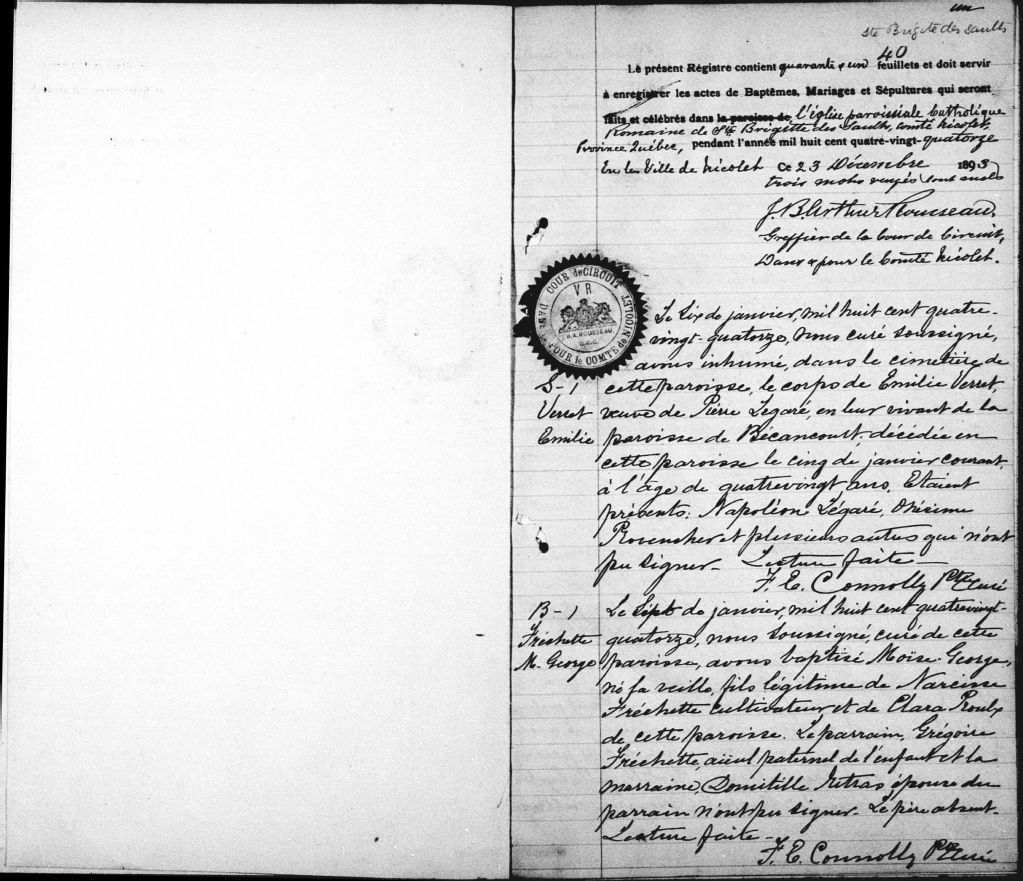 un
Ste Brigite des Saults
40
Le présent Régistre contient quarante & un feuillets et doit servir
à enregistrer les actes de Baptêmes, Mariages et Sépultures qui seront
faits et célébrés dans la paroisse de l'église paroissiale Catholique
Romaine de Ste Brigitte des Saults, comté Nicolet,
Province Québec, pendant l'année mil huit cent quatre-vingt-quatorze
En la Ville de Nicolet Ce 23 Décembre 1893
trois mots rayés sont nuls
J. B. Arthur Rousseau
Greffier de la Cour de Circuit,
Dans & pour le Comté Nicolet.
COUR de CIRCUIT DANS & POUR le COMTÉ de NICOLET
V R
ROUSSEAU
G.C.C.
Le Six de janvier, mil huit cent quatre-
vingt-quatorze, nous curé soussigné,
avons inhumé, dans le cimetière de
S-1 cette paroisse, le corps de Emilie Verret,
Verret veuve de Pierre Legaré, en leur vivant de la
Emilie paroisse de Bécancourt, décédée en
cette paroisse le cinq de janvier courant,
à l'âge de quatrevingt ans. Etaient
présents: Napoléon Légaré, Onésime
Provencher et plusieurs autres qui n'ont
pu signer_ Lecture faite_
F. E. Connolly Ptre Curé
B-1 Le Sept de janvier, mil huit cent quatrevingt-
Fréchette quatorze, nous soussigné, curé de cette
M. George paroisse, avons baptisé Moïse-George,
né la veille, fils légitime de Narcisse
Fréchette cultivateur et de Clara Proulx
de cette paroisse. Le parrain, Grégoire
Fréchette, aïeul paternel de l'enfant et la
marraine, Domitille épouse du
parrain n'ont pu signer. Le père absent.
Lecture faite_
F. E. Connolly Ptre Curé